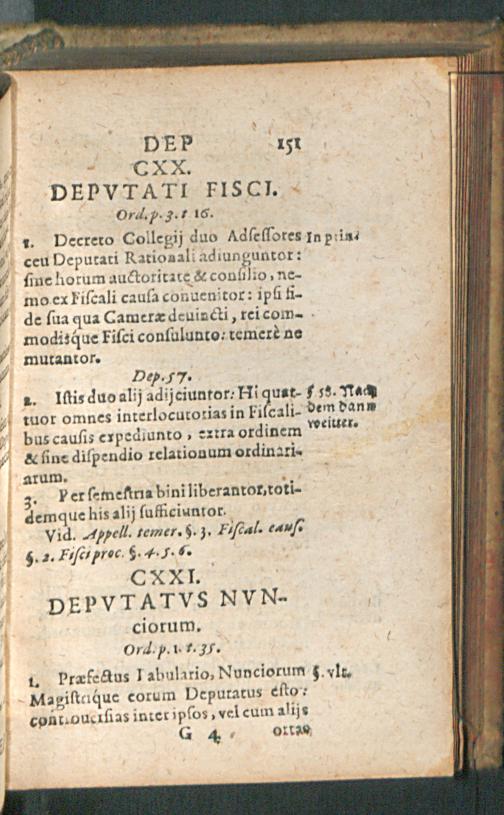 DEP 151
CXX.
DEPVTATI FISCI.
Ord. p. 3. t 16.
1. Decreto Collegij duo Adseſſores In prin:
ceu Deputati Rationali adiunguntor:
ſine horum auctoritate & conſilio, ne-
mo ex Fiſcali cauſa conuenitor: ipſi fi-
de ſua qua Cameræ deuincti, rei com-
modisque Fiſci conſulunto: temerè ne
mutantor.
Dep. 57.
2. Iſtis duo alij adijciuntor: Hi quat- § 58. Nach
tuor omnes interlocutorias in Fiſcali- dem dann
bus cauſis expediunto, extra ordinem weitter.
& ſine diſpendio relationum ordinari-
arum.
3. Per ſemeſtria bini liberantor, toti-
demque his alij ſufficiuntor.
Vid. Appell. temer. §. 3. Fiſcal. cauſ.
§. 2. Fiſci proc. §. 4. 5. 6.
CXXI.
DEPVTATVS NVN-
ciorum.
Ord. p. 1. t. 35.
1. Præfectus Tabulario, Nunciorum §. vlt.
Magiſtrique eorum Deputatus eſto:
controuerſias inter ipſos, vel cum alijs
G 4 ortas